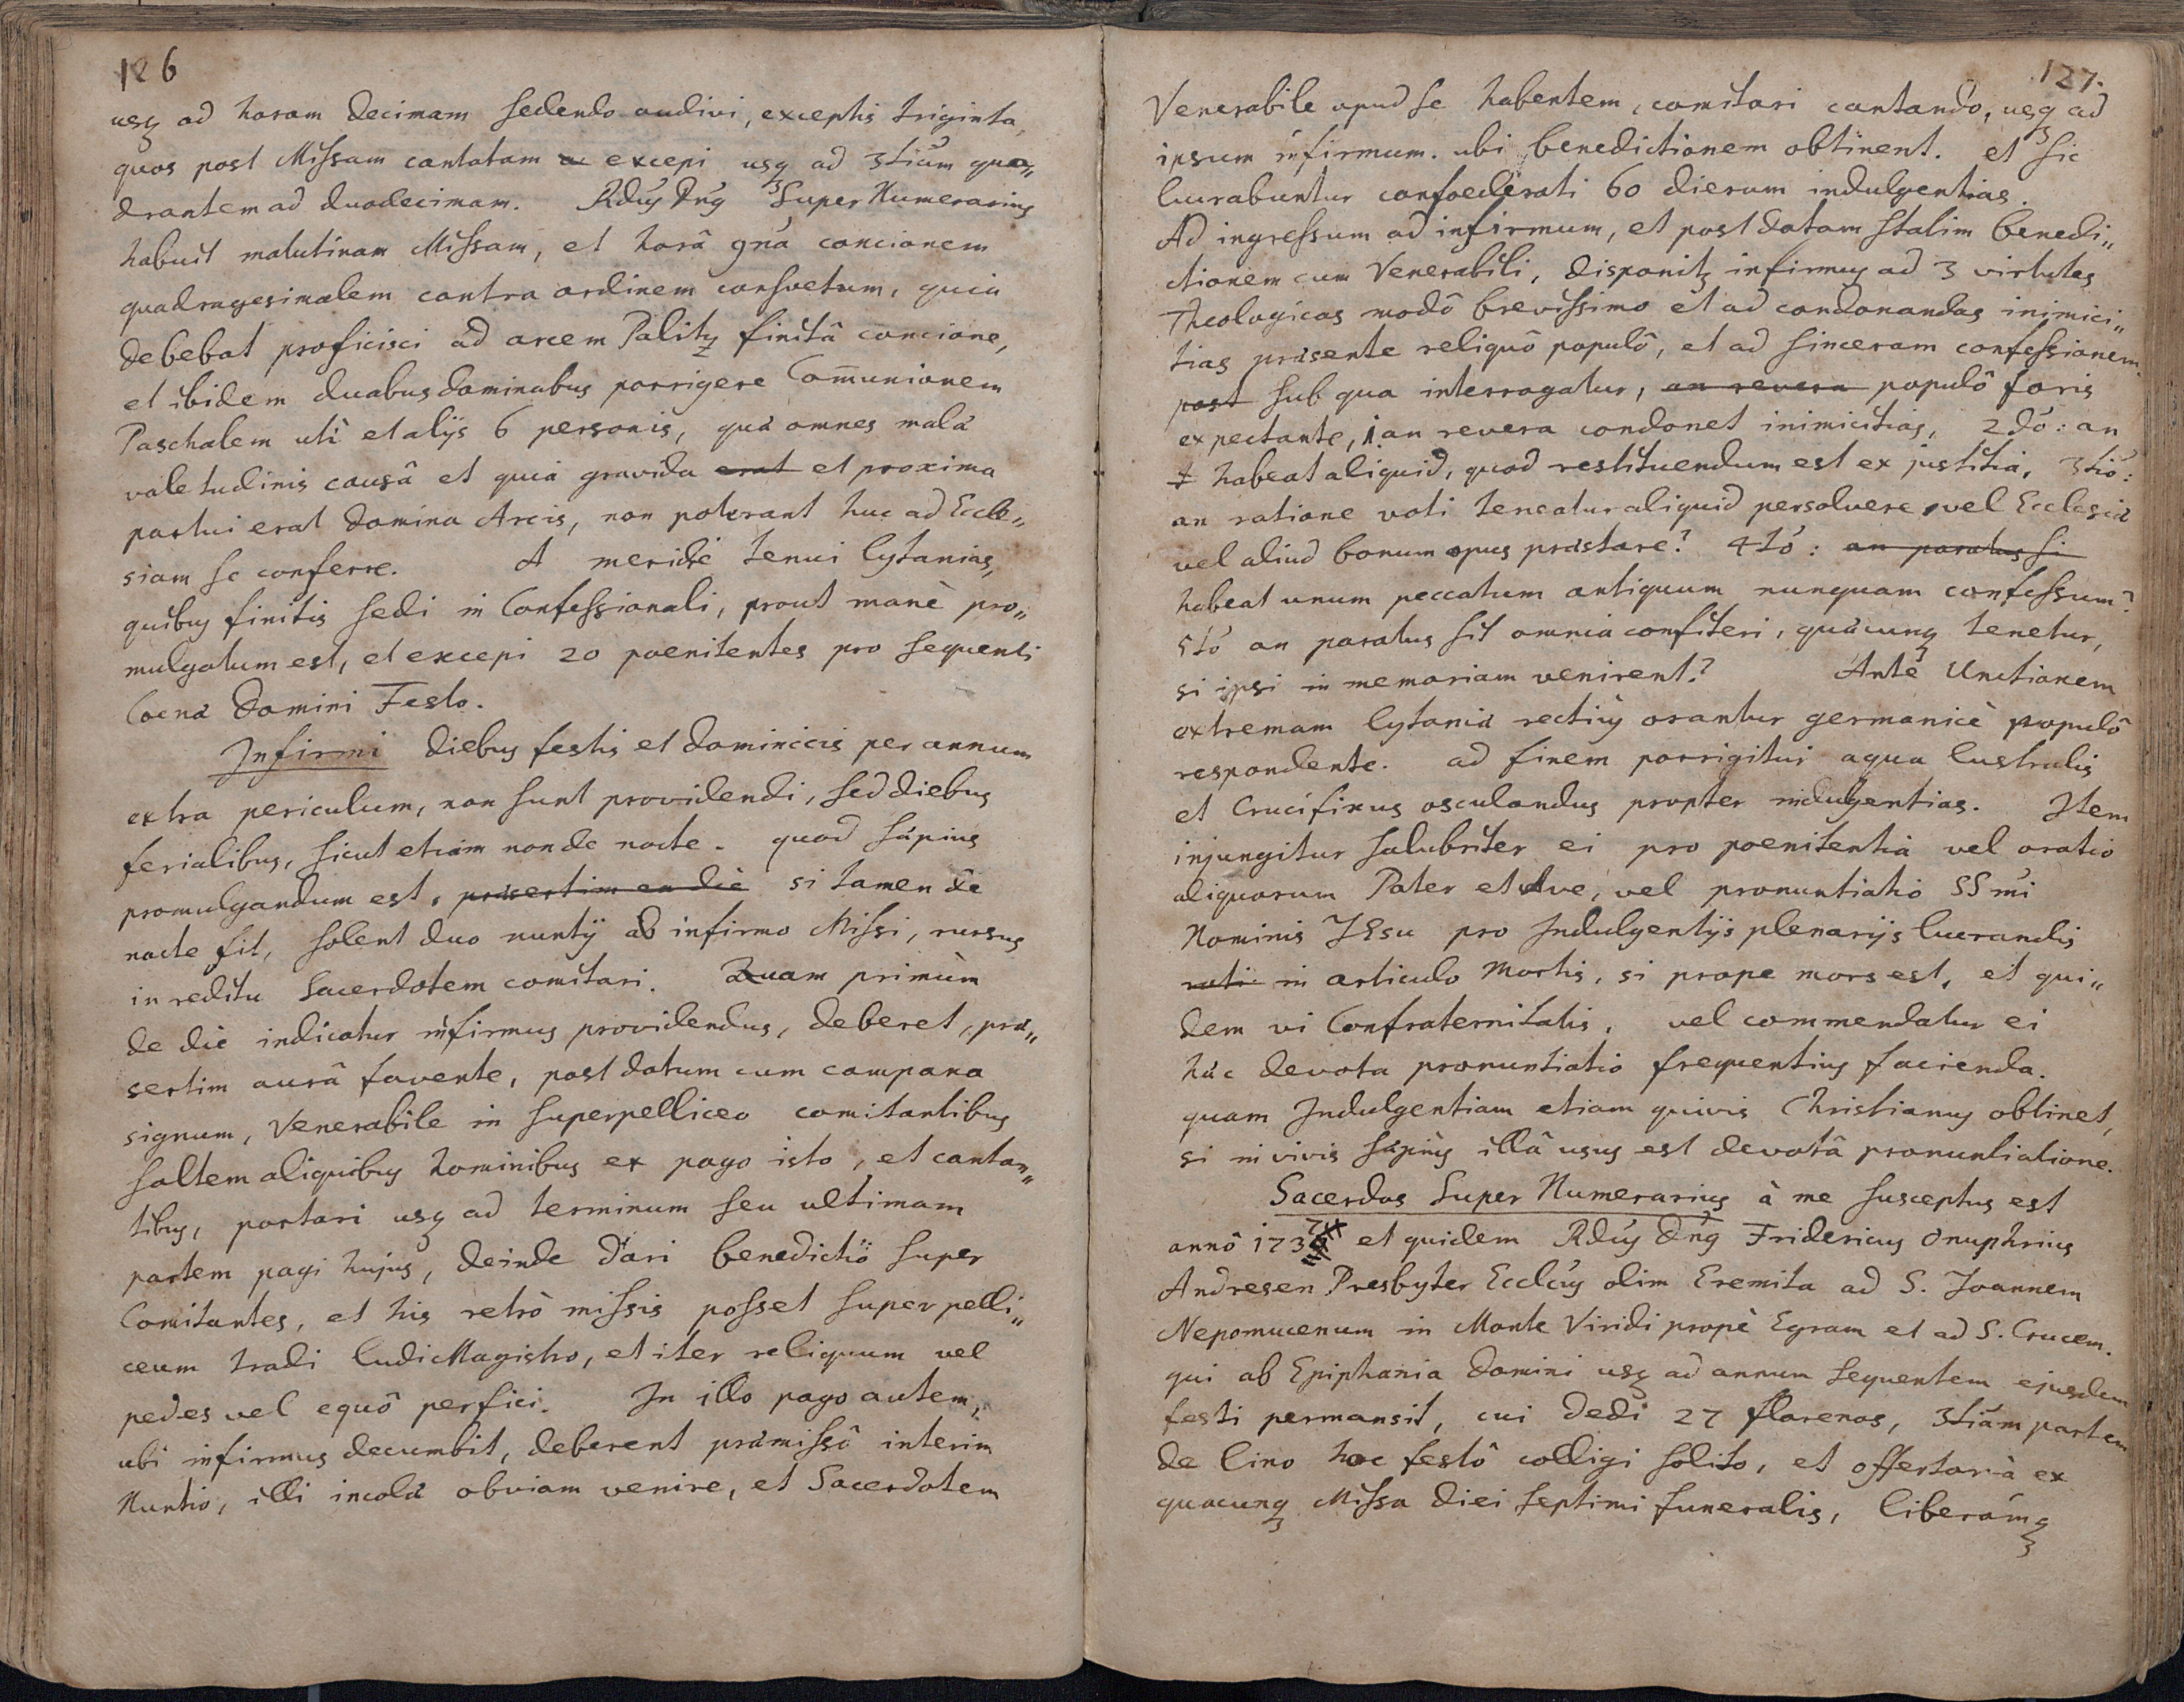 126
usq ad horam decimam sedendo audivi, exceptis triginta,
quos post Missam cantatam excepi usq ad 3tium qua„
drantem ad duodecimam. Rdus Dng Super Numerarius
habuit matutinam Missam, et horâ 9nâ concionem
quadragesimalem contra ordinem consvetum, quia
debebat proficisci ad arcem Palitz finitâ concione,
et ibidem duabus dominabus porrigere Comunionem
Paschalem uti et alijs 6 personis, quæ omnes malæ
valetudinis causâ et quia gravida erat et proxima
partui erat Domina Arcis, non poterant huc ad Eccle„
siam se conferre. A meridie tenui lytanias,
quibus finitis sedi in Confessionali, prout manè pro„
mulgatum est, et excepi 20 poenitentes pro sequenti
Coenæ Domini Festo.
Infirmi diebus festis et dominicis per annum
extra periculum, non sunt providendi, sed diebus
ferialibus, sicut etiam non de nocte. quod sæpius
promulgandum est. præsertim ea die si tamen de
nocte fit, solent duo nuntij ab infirmo Missi, rursus
in reditu Sacerdotem comitari. Quam primùm
de die indicatur infirmus providendus, deberet, præ„
sertim aurâ favente, post datum cum campana
signum, Venerabile in superpelliceo comitantibus
saltem aliquibus hominibus ex pago isto, et cantan„
tibus, portari usq ad terminum seu ultimam
partem pagi hujus, deinde dari benedictio super
Comitantes, et his retrò missis posset superpelli„
ceum tradi ludiMagistro, et iter reliquum vel
pedes vel equô perfici. In illo pago autem,
ubi infirmus decumbit, deberent præmissô interim
Nuntio, illi incolæ obviam venire, et Sacerdotem
127.
Venerabile apud se habentem, comitari cantando, usq ad
ipsum infirmum. ubi benedictionem obtinent. et sic
lucrabuntur confoederati 60 dierum indulgentias.
Ad ingressum ad infirmum, et post datam statim benedi„
ctionem cum Venerabili, disponitz infirmus ad 3 virtutes
Theologicas modô brevissimo et ad condonandas inimici„
tias præsente reliquô populô, et ad sinceram confessionem.
post sub qua interrogatur, an revera populô foris
expectante, 1. an revera condonet inimicitias, 2dò: an
habeat aliquid, quod restituendum est ex justitia, 3tiò:
an ratione voti teneatur aliquid persolvere vel Ecclesiæ
vel aliud bonum opus præstare? 4tò: an paratus si
habeat unum peccatum antiquum nunquam confessum?
5tò an paratus sit omnia confiteri, quæcunq tenetur,
si ipsi in memoriam venirent? Ante Unctionem
extremam lytaniæ rectius orantur germanicè populô
respondente. ad finem porrigitur aqua lustralis
et Crucifixus osculandus propter indulgentias. Item
injungitur salubriter ei pro poenitentia vel oratio
aliquorum Pater et Ave, vel pronuntiatio SSmi
Nominis JEsu pro Indulgentijs plenarijs lucrandis
in articulo Mortis, si prope mors est, et qui„
dem vi Confraternitatis, vel commendatur ei
hæc devota pronuntiatio frequentius facienda.
quam Indulgentiam etiam quivis Christianus obtinet,
si in vivis sæpius illâ usus est devotâ pronuntiatione.
Sacerdos Super Numerarius à me susceptus est
annô 173 et quidem Rdus Dng Fridericus Onuphrius
Andresen Presbyter Ecclus olim Eremita ad S. Joannem
Nepomucenum in Monte Viridi propè Egram et ad S. Crucem.
qui ab Epiphania Domini usq ad annum sequentem ejusdem
festi permansit, cui dedi 27 florenos, 3tiam partem
de lino hoc festô colligi solito, et offertoria ex
quacunq Missa diei septimi funeralis, liberamq